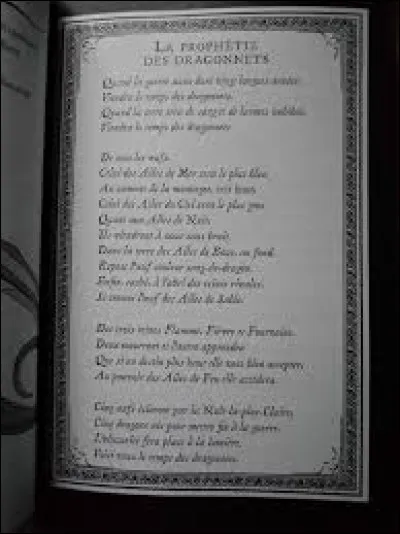 LA PROPHÉTIE
DES DRAGONNETS
Quand la guerre aura duré vingt longues années,
Viendra le temps des dragonnets.
Quand la terre sera de sang et de larmes imbibée,
Viendra le temps des dragonnets
De tous les œufs,
Celui des Ailes de Mer sera le plus bleu,
Au sommet de la montagne, très haut,
Celui des Ailes du Ciel sera le plus gros
Quant aux Ailes de Nuit,
Ils viendront à nous sans bruit,
Dans la terre des Ailes de Boue, au fond,
Repose l'œuf couleur sang-de-dragon.
Enfin, caché, à l'abri des reines rivales,
Se trouve l'œuf des Ailes de Sable.
Des trois reines Flamme, Fièvre et Fournaise,
Deux mourront et l'autre apprendra
Que si au destin plus haut elle veut bien
Au pouvoir des Ailes de Feu elle accédera.
Cinq œufs écloront par la Nuit-la-plus-Claire,
Cinq dragons nés pour mettre fin à la guerre.
L'obscurité fera place à la lumière,
Voici venu le temps des dragonnets.